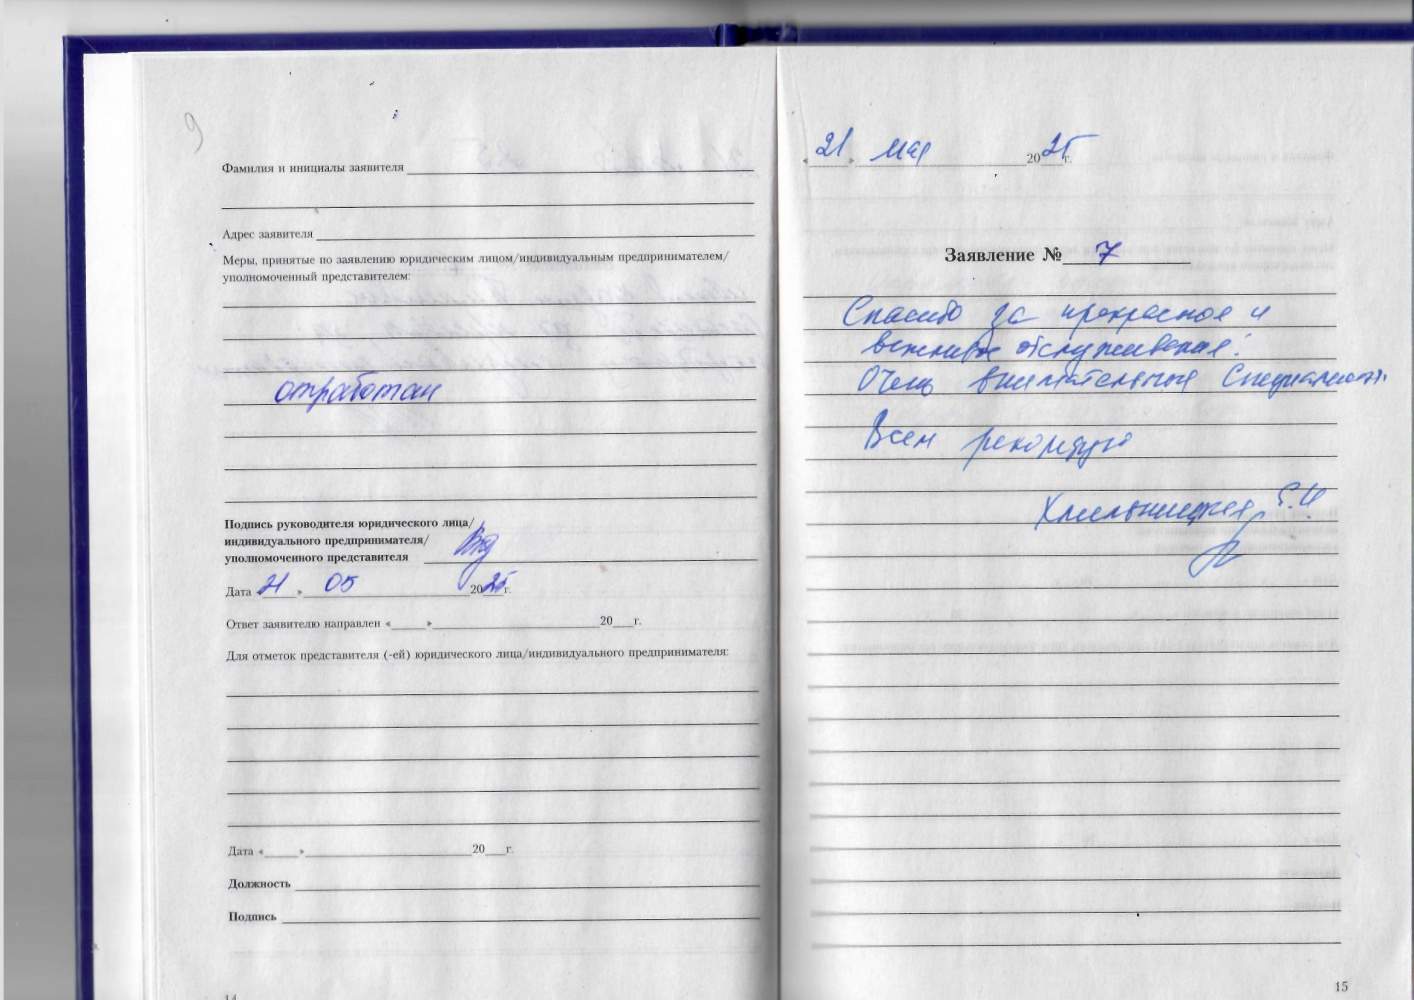 9
Фамилия и инициалы заявителя
Адрес заявителя
Меры, принятые по заявлению юридическим лицом/индивидуальным предпринимателем/
уполномоченный представителем:
отработан
Подпись руководителя юридического лица/
индивидуального предпринимателя/
уполномоченного представителя
Дата «21» 05 2025г.
Ответ заявителю направлен «     »                    20   г.
Для отметок представителя (-ей) юридического лица/индивидуального предпринимателя:
Дата «     »                    20   г.
Должность
Подпись
14
«21» мая 2025г.
Заявление № 7
Спасибо за прекрасное и
вежливое обслуживание!
Очень внимательные специалисты.
Всем рекомендую
Хмельницкая Е.И.
15